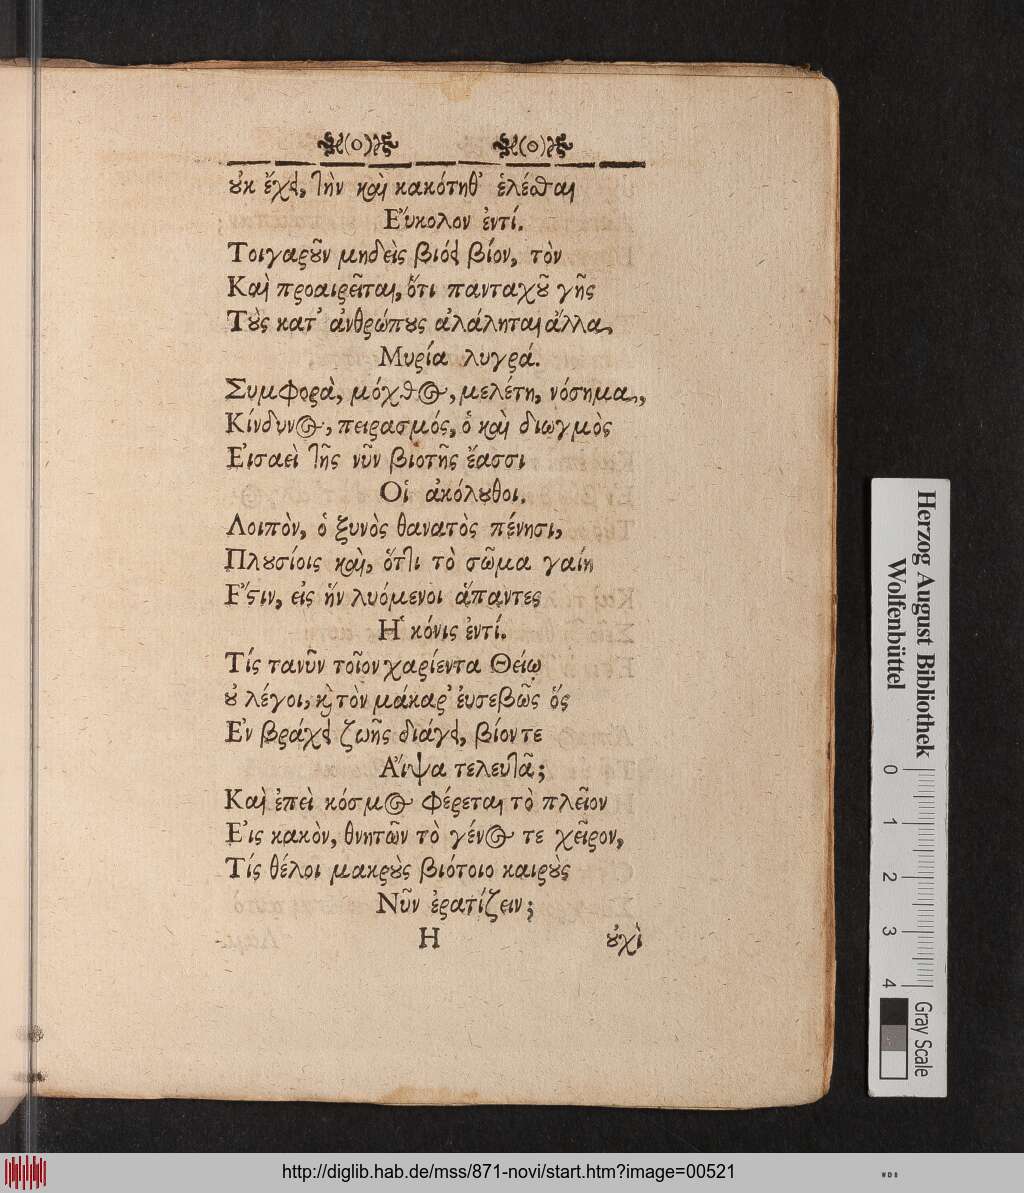 ȣκ ἔχει, τὴν καὶ κακότηθ' ἑλέσθαι
Εὔκολον ἐντί.
Τοιγαρȣ͂ν μηδεὶς βιόει βίον, τὸν
Καὶ προαιρεῖται, ὅτι πανταχȣ͂ γῆς
Τȣ̀ς κατ' ἀνθρώπȣς ἀλάληται ἄλλα,
Μυρία λυγρά.
Συμφορὰ, μόχθος, μελέτη, νόσημα,
Κίνδυνος, πειρασμός, ὁ καὶ διωγμὸς
Εἰσαεὶ τῆς νῦν βιοτῆς ἔασσι
Οἱ ἀκόλȣθοι.
Λοιπὸν, ὁ ξυνὸς θανατὸς πένησι,
Πλȣσίοις καὶ, ὅττι τὸ σῶμα γαίη
Ἔστιν, εἰς ἥν λυόμενοι ἅπαντες
Ἡ κόνις ἐντί.
Τίς τανῦν τοῖον χαρίεντα Θείῳ
ȣ̓ λέγοι, κὴ τὸν μάκαρ' ἐυσεβῶς ὅς
Ἐν βράχει ζωῆς διάγει, βίον τε
Αἶψα τελευτᾶ;
Καὶ ἐπεὶ κόσμος φέρεται τὸ πλεῖον
Εἰς κακὸν, θνητῶν τὸ γένος τε χεῖρον,
Τίς θέλοι μακρȣ̀ς βιότοιο καιρȣ̀ς
Νῦν ἐρατίζειν;
Η ȣ̓χὶ
Herzog August Bibliothek
Wolfenbüttel
0 1 2 3 4
Gray Scale
http://diglib.hab.de/mss/871-novi/start.htm?image=00521